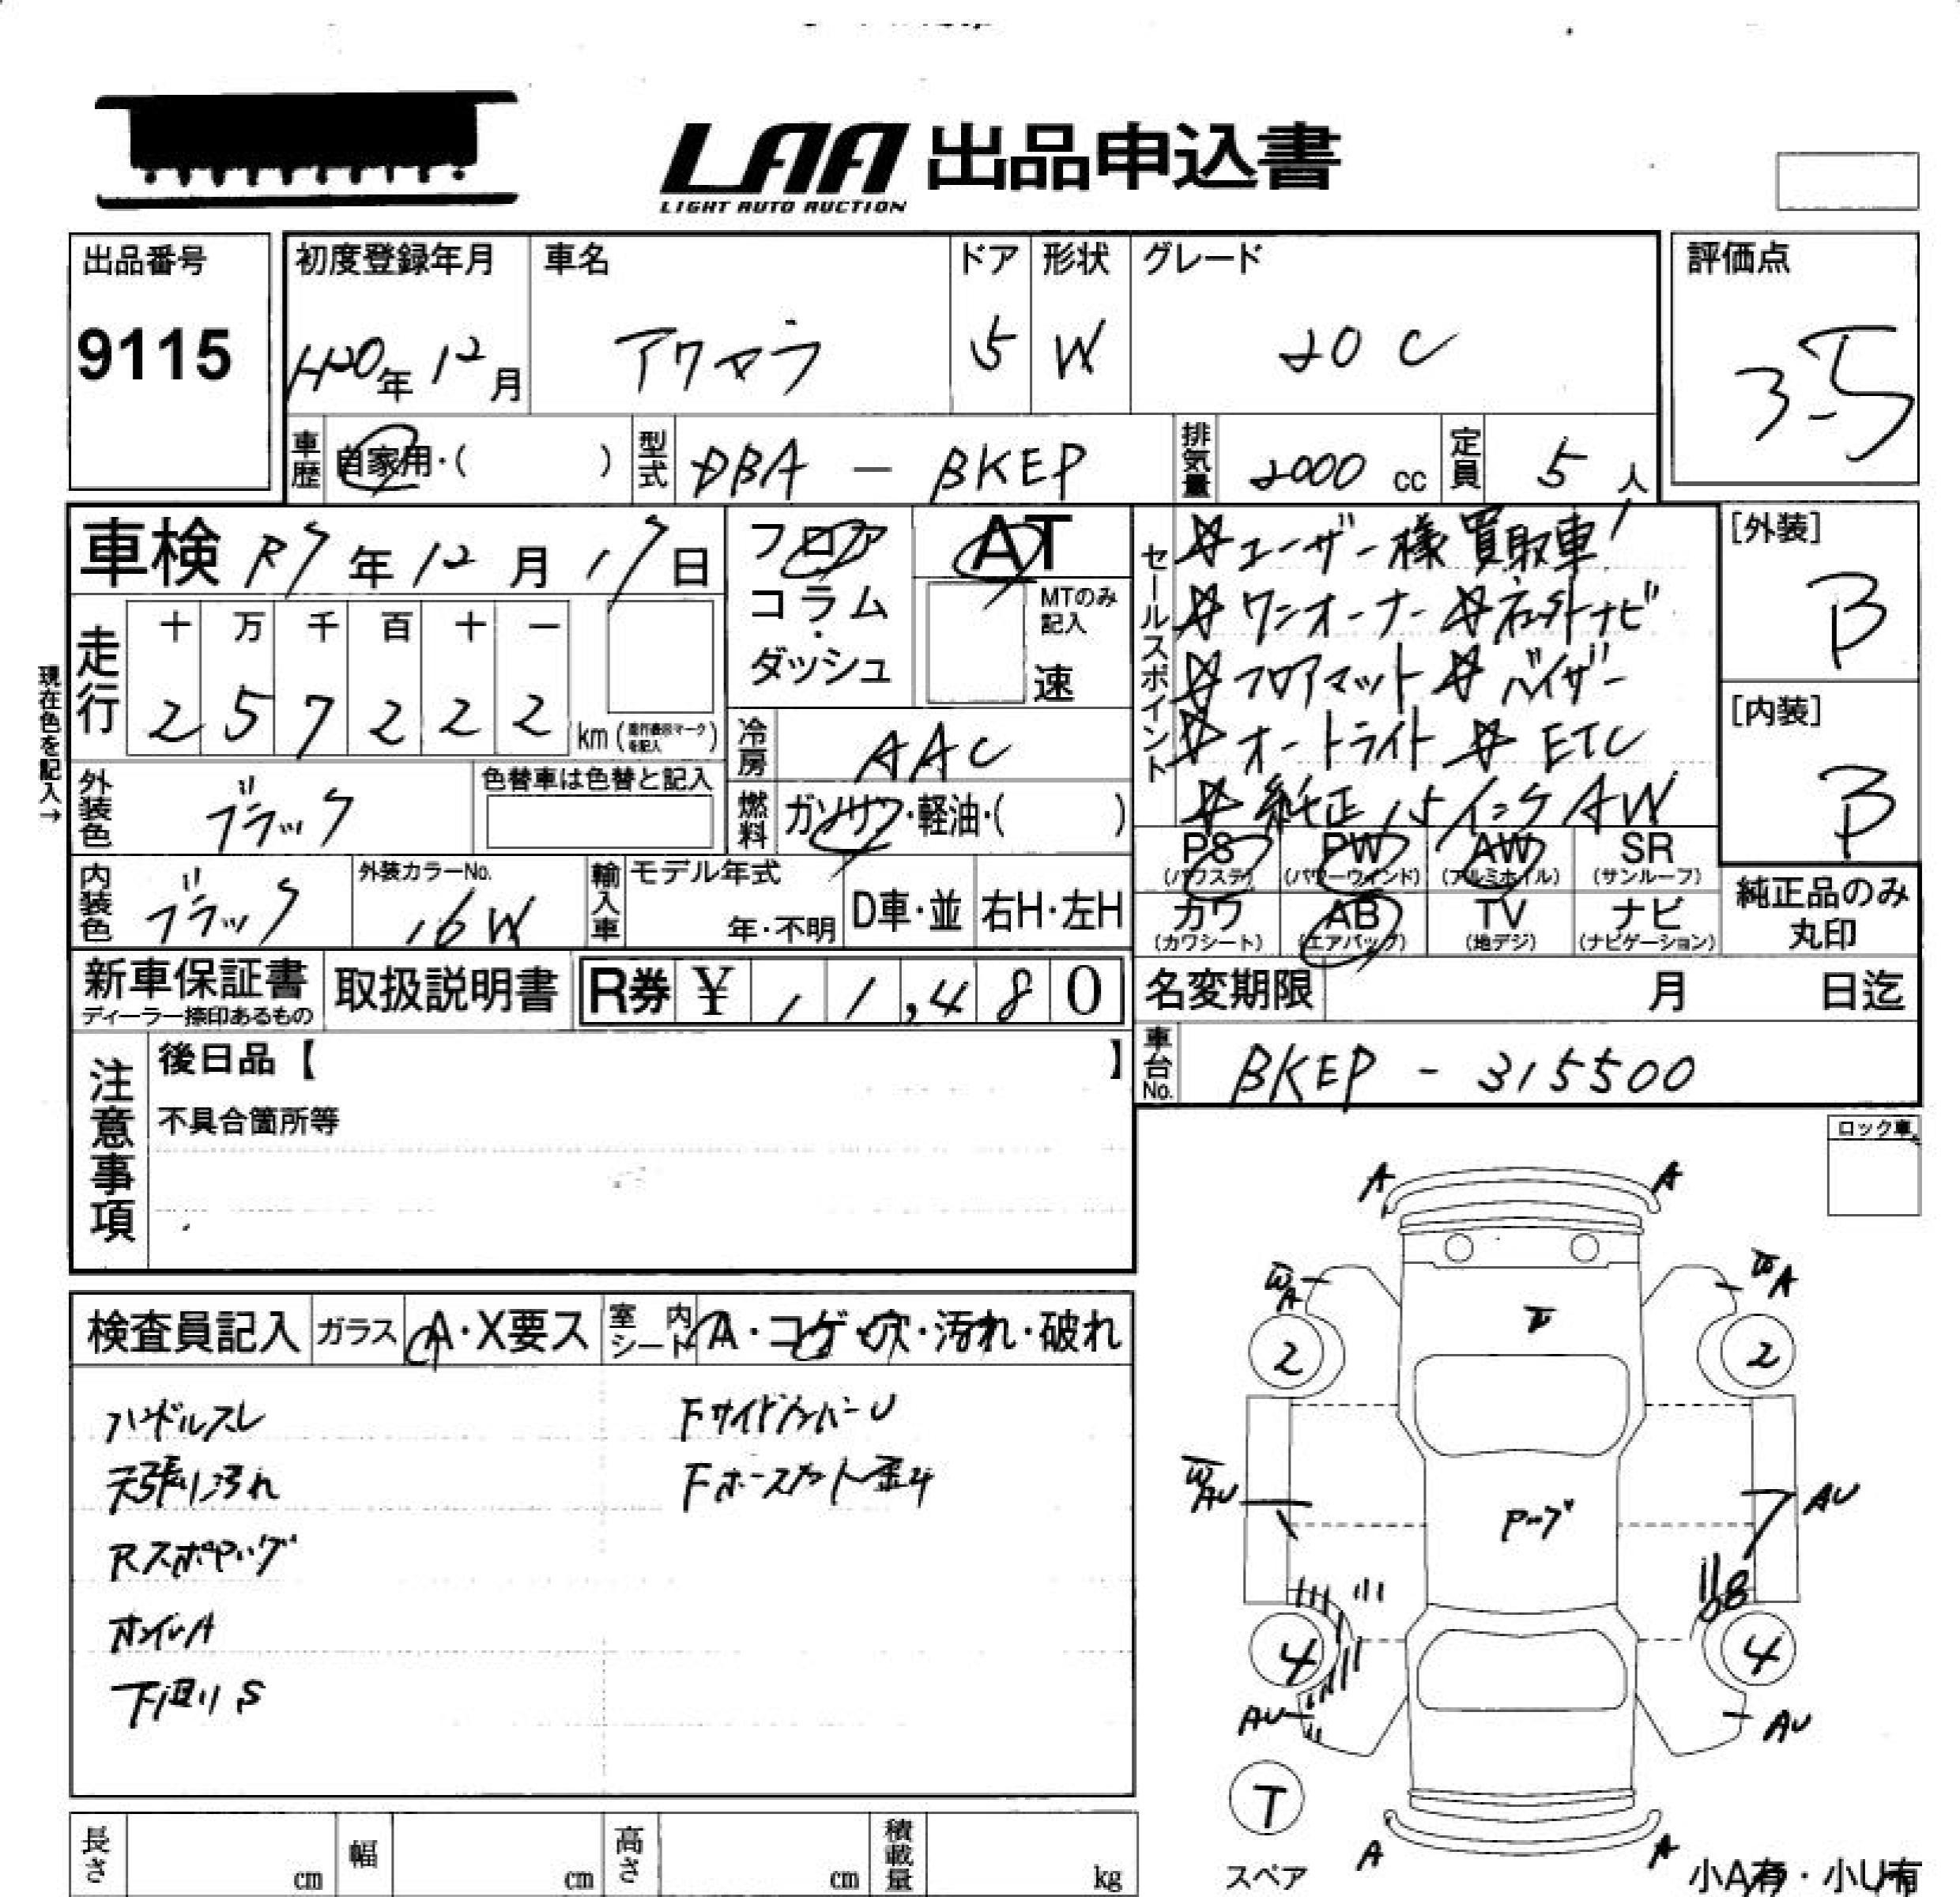 LAA 出品申込書
LIGHT AUTO AUCTION
出品番号
9115
初度登録年月
H20年 12月
車名
アクセラ
ドア
5
形状
W
グレード
20C
評価点
3.5
車歴
自家用・( )
型式
DBA - BKEP
排気量
2000 cc
定員
5 人
車検 R7年 12月 17日
フロア
コラム
・
ダッシュ
AT
MTのみ
記入
速
セールスポイント
☆ユーザー様買取車!
☆ワンオーナー ☆社外ナビ
☆フロアマット ☆バイザー
☆オートライト ☆ETC
☆純正15インチAW
[外装]
B
[内装]
B
現在色を記入→
走行
十 万 千 百 十 一
2 5 7 2 2 2
km (走行表示マークを記入)
冷房
AAC
外装色
ブラック
色替車は色替と記入
燃料
ガソリン・軽油・( )
内装色
ブラック
外装カラーNo.
16W
輸入車
モデル年式
年・不明
D車・並
右H・左H
PS
(パワステ)
PW
(パワーウインド)
AW
(アルミホイル)
SR
(サンルーフ)
カワ
(カワシート)
AB
(エアバッグ)
TV
(地デジ)
ナビ
(ナビゲーション)
純正品のみ
丸印
新車保証書
ディーラー捺印あるもの
取扱説明書
R券 ¥ 11,480
名変期限
月 日迄
車台No.
BKEP - 315500
注意事項
後日品【 】
不具合箇所等
ロック車
検査員記入
ガラス
A・X要ス
室内シート
A・コゲ・穴・汚れ・破れ
ハンドルスレ
天張り汚れ
Rスポイラーハゲ
ホイルA
下廻りS
FサイドメンバーU
A
A
W
A
W
A
2
2
W
AU
AU
4
4
AU
AU
T
スペア
A
A
小A有・小U有
長さ
cm
幅
cm
高さ
cm
積載量
kg